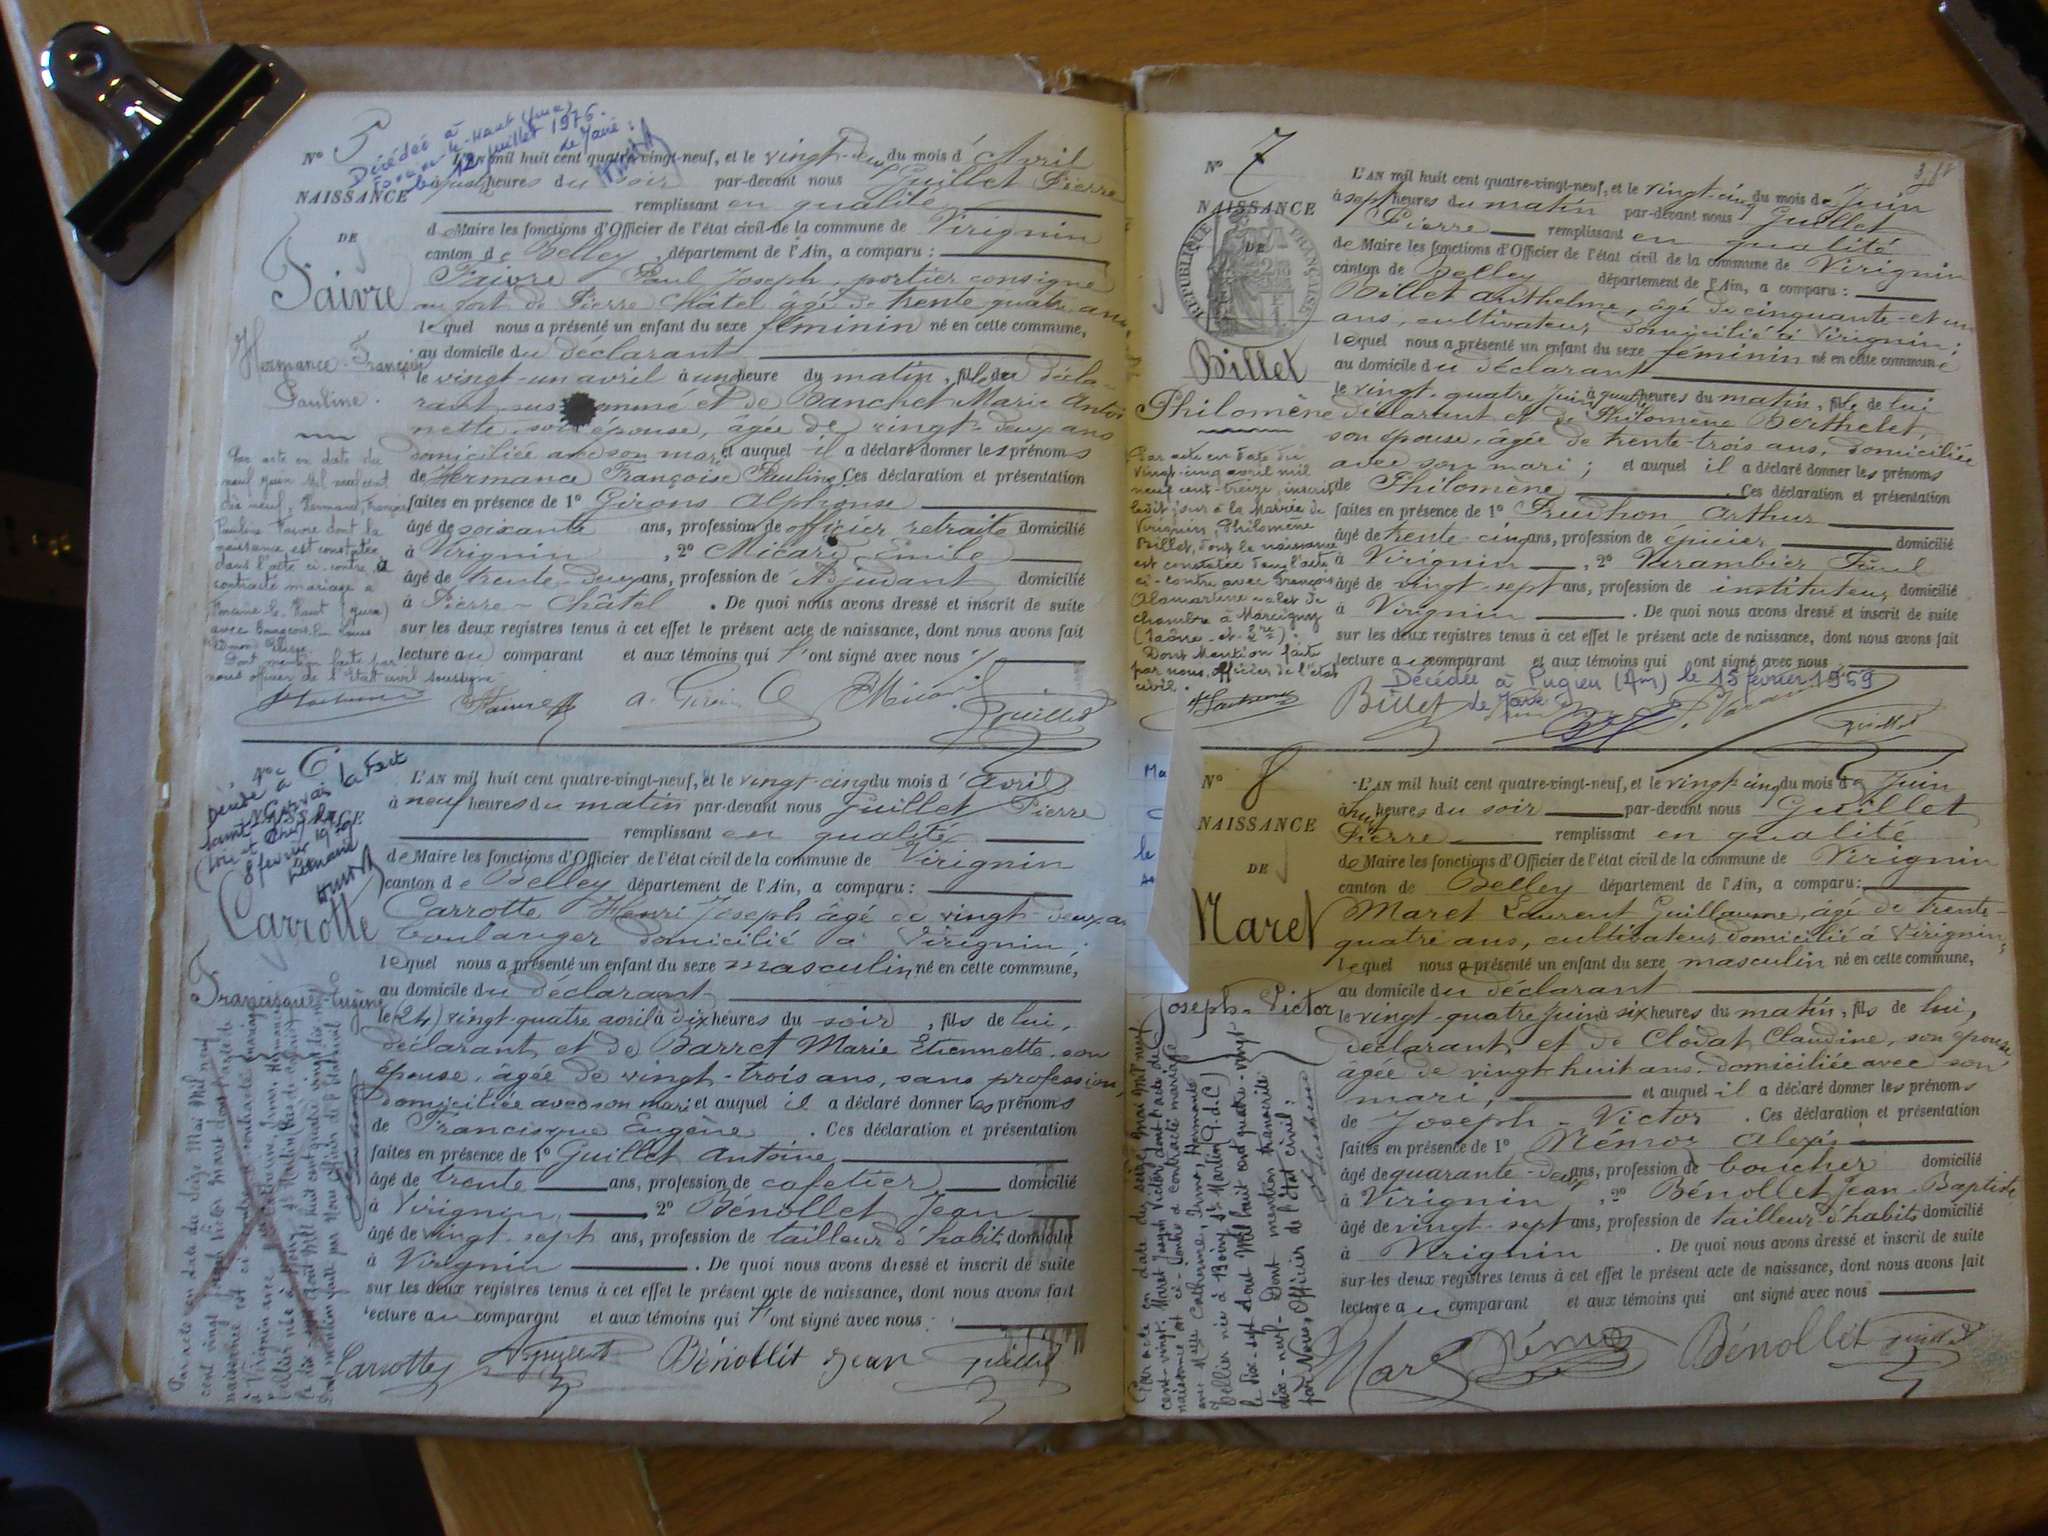 N° 5
Décédée à
le 12 juillet 1976.
L'AN mil huit cent quatre-vingt-neuf, et le vingt-deux du mois d'Avril
à heures du soir par-devant nous Guillet Pierre
NAISSANCE remplissant en qualité
DE
de Maire les fonctions d'Officier de l'état civil de la commune de Virignin
canton de Belley, département de l'Ain, a comparu :
Faivre
Faivre Paul Joseph, portier consigne
au fort de Pierre Châtel âgé de trente quatre ans
lequel nous a présenté un enfant du sexe féminin né en cette commune,
Hermance-Françoise
Pauline.
au domicile du déclarant
le vingt-un avril à une heure du matin, fille du décla-
rant susnommé et de Banchet Marie Antoi
nette, son épouse, âgée de vingt-deux ans
domiciliée avec son mari et auquel il a déclaré donner les prénoms
de Hermance Françoise Pauline Ces déclaration et présentation
faites en présence de 1° Girons Alphonse
âgé de soixante ans, profession de officier retraité domicilié
à Virignin, 2° Micard Emile
âgé de trente-deux ans, profession de Adjudant domicilié
à Pierre-Châtel. De quoi nous avons dressé et inscrit de suite
sur les deux registres tenus à cet effet le présent acte de naissance, dont nous avons fait
lecture au comparant et aux témoins qui l'ont signé avec nous ;
Par acte en date du
neuf juin mil neuf cent
dix neuf, Hermance Françoise
Pauline Faivre dont la
naissance est constatée
dans l'acte ci-contre a
contracté mariage à
Foncine-le-Haut (Jura)
avec Bourgeois
Dont mention faite par
nous officier de l'Etat civil soussigné
Faivre Guillet
N° 6
Décédé à
Saint Gervais la Forêt
(Loir et Cher) le
8 février 19
L'AN mil huit cent quatre-vingt-neuf, et le vingt-cinq du mois d'avril
à neuf heures du matin par-devant nous Guillet Pierre
remplissant en qualité
de Maire les fonctions d'Officier de l'état civil de la commune de Virignin
canton de Belley département de l'Ain, a comparu :
Carrotte
Carrotte Henri Joseph âgé de vingt deux ans
boulanger domicilié à Virignin ;
lequel nous a présenté un enfant du sexe masculin, né en cette commune,
Francisque-Eugène
au domicile du déclarant
le (24) vingt-quatre avril à dix heures du soir, fils de lui,
déclarant, et de Barret Marie Etiennette, son
épouse, âgée de vingt-trois ans, sans profession,
domiciliée avec son mari et auquel il a déclaré donner les prénoms
de Francisque Eugène. Ces déclaration et présentation
faites en présence de 1° Guillet Antoine
âgé de trente ans, profession de cafetier domicilié
à Virignin, 2° Bénollet Jean
âgé de vingt-sept ans, profession de tailleur d'habits domicilié
à Virignin. De quoi nous avons dressé et inscrit de suite
sur les deux registres tenus à cet effet le présent acte de naissance, dont nous avons fait
lecture au comparant et aux témoins qui l'ont signé avec nous.
Carrotte A. Guillet Bénollet Jean Guillet
N° 7
L'AN mil huit cent quatre-vingt-neuf, et le vingt-cinq du mois de Juin
à sept heures du matin par-devant nous Guillet
NAISSANCE
DE
RÉPUBLIQUE FRANÇAISE
Pierre remplissant en qualité
de Maire les fonctions d'Officier de l'état civil de la commune de Virignin
canton de Belley département de l'Ain, a comparu :
Billet Anthelme, âgé de cinquante-et-un
ans, cultivateur domicilié à Virignin ;
lequel nous a présenté un enfant du sexe féminin né en cette commune
Billet
Philomène
au domicile du déclarant
le vingt-quatre Juin à quatre heures du matin, fille de lui
déclarant et de Philomène Berthelet,
son épouse, âgée de trente-trois ans, domiciliée
avec son mari ; et auquel il a déclaré donner les prénoms
de Philomène. Ces déclaration et présentation
faites en présence de 1° Prudhon Arthur
âgé de trente-cinq ans, profession de épicier domicilié
à Virignin, 2° Varambier Paul
âgé de vingt-sept ans, profession de instituteur domicilié
à Virignin. De quoi nous avons dressé et inscrit de suite
sur les deux registres tenus à cet effet le présent acte de naissance, dont nous avons fait
lecture au comparant et aux témoins qui ont signé avec nous
Par acte en date du
vingt-cinq avril mil
neuf cent-treize, inscrit
ledit jour à la Mairie de
Virignin, Philomène
Billet, dont la naissance
est constatée dans l'acte
ci-contre avec François
Alamartine valet de
chambre à Marcigny
(Saône-et-Lre).
Dont Mention faite
par nous, officier de l'état
civil.
Décédée à Pugieu (Ain) le 15 février 1959
Billet Guillet
N° 8
L'AN mil huit cent quatre-vingt-neuf, et le vingt-cinq du mois de Juin
à huit heures du soir par-devant nous Guillet
NAISSANCE
DE
Pierre remplissant en qualité
de Maire les fonctions d'Officier de l'état civil de la commune de Virignin
canton de Belley département de l'Ain, a comparu :
Maret
Maret Laurent Guillaume, âgé de trente-
quatre ans, cultivateur, domicilié à Virignin ;
lequel nous a présenté un enfant du sexe masculin né en cette commune,
Joseph-Victor
au domicile du déclarant
le vingt-quatre Juin à six heures du matin, fils de lui,
déclarant, et de Clodat Claudine, son épouse
âgée de vingt huit ans, domiciliée avec son
mari, et auquel il a déclaré donner les prénoms
de Joseph-Victor. Ces déclaration et présentation
faites en présence de 1° Némoz Alexis
âgé de quarante-deux ans, profession de boucher domicilié
à Virignin, 2° Bénollet Jean-Baptiste
âgé de vingt-sept ans, profession de tailleur d'habits domicilié
à Virignin. De quoi nous avons dressé et inscrit de suite
sur les deux registres tenus à cet effet le présent acte de naissance, dont nous avons fait
lecture au comparant et aux témoins qui ont signé avec nous
Par acte en date du seize mai mil neuf
cent-vingt, Maret Joseph Victor, dont l'acte de
naissance est ci-contre a contracté mariage
avec Melle Catherine, Irma, Hermance
Tellier née à
le dix-sept Août Mil huit cent quatre-vingt
dix-neuf. Dont mention transcrite
par Nous, Officier de l'état civil.
Maret Némoz Bénollet Guillet